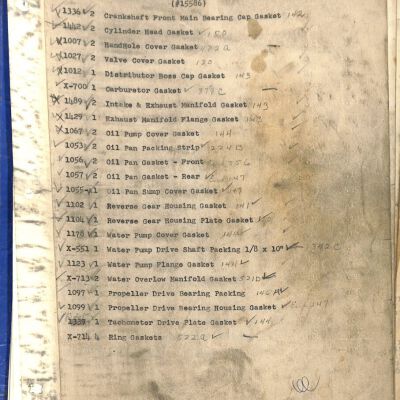 (#15586)
1336 2 Crankshaft Front Main Bearing Cap Gasket 142
1442 2 Cylinder Head Gasket 150
1007 2 HandHole Cover Gasket
1027 2 Valve Cover Gasket
1012 1 Distributor Base Cap Gasket 143
X-700 1 Carburetor Gasket
1489 2 Intake & Exhaust Manifold Gasket 143
1429 1 Exhaust Manifold Flange Gasket
1067 2 Oil Pump Cover Gasket 144
1053 2 Oil Pan Packing Strip
1056 2 Oil Pan Gasket - Front
1057 2 Oil Pan Gasket - Rear
1055-A 1 Oil Pan Sump Cover Gasket
1102 1 Reverse Gear Housing Gasket
1104 1 Reverse Gear Housing Plate Gasket
1178 1 Water Pump Cover Gasket
X-551 1 Water Pump Drive Shaft Packing 1/8 x 10"
1123 1 Water Pump Flange Gasket
X-713 2 Water Overlow Manifold Gasket
1097 1 Propeller Drive Bearing Packing
1099 1 Propeller Drive Bearing Housing Gasket
1 Tachometer Drive Plate Gasket 144
X-714 4 Ring Gaskets